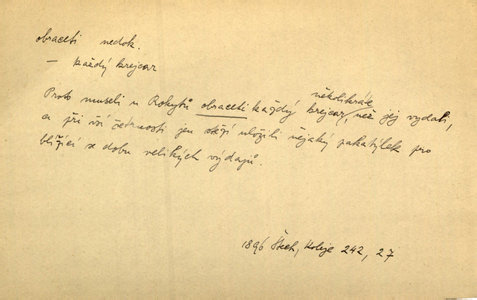 obraceti nedok.
– každý krejcar
Proto museli u Rokytů obraceti každý několikráte krejcar, než jej vydali,
a při vší četnosti jen stěží uložili nějaký pakatýlek pro
blížící se dobu velikých výdajů.
1896 Štech, Koleje 242, 27